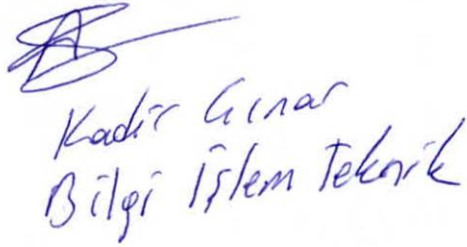 Kadir Çınar
Bilgi İşlem Teknik